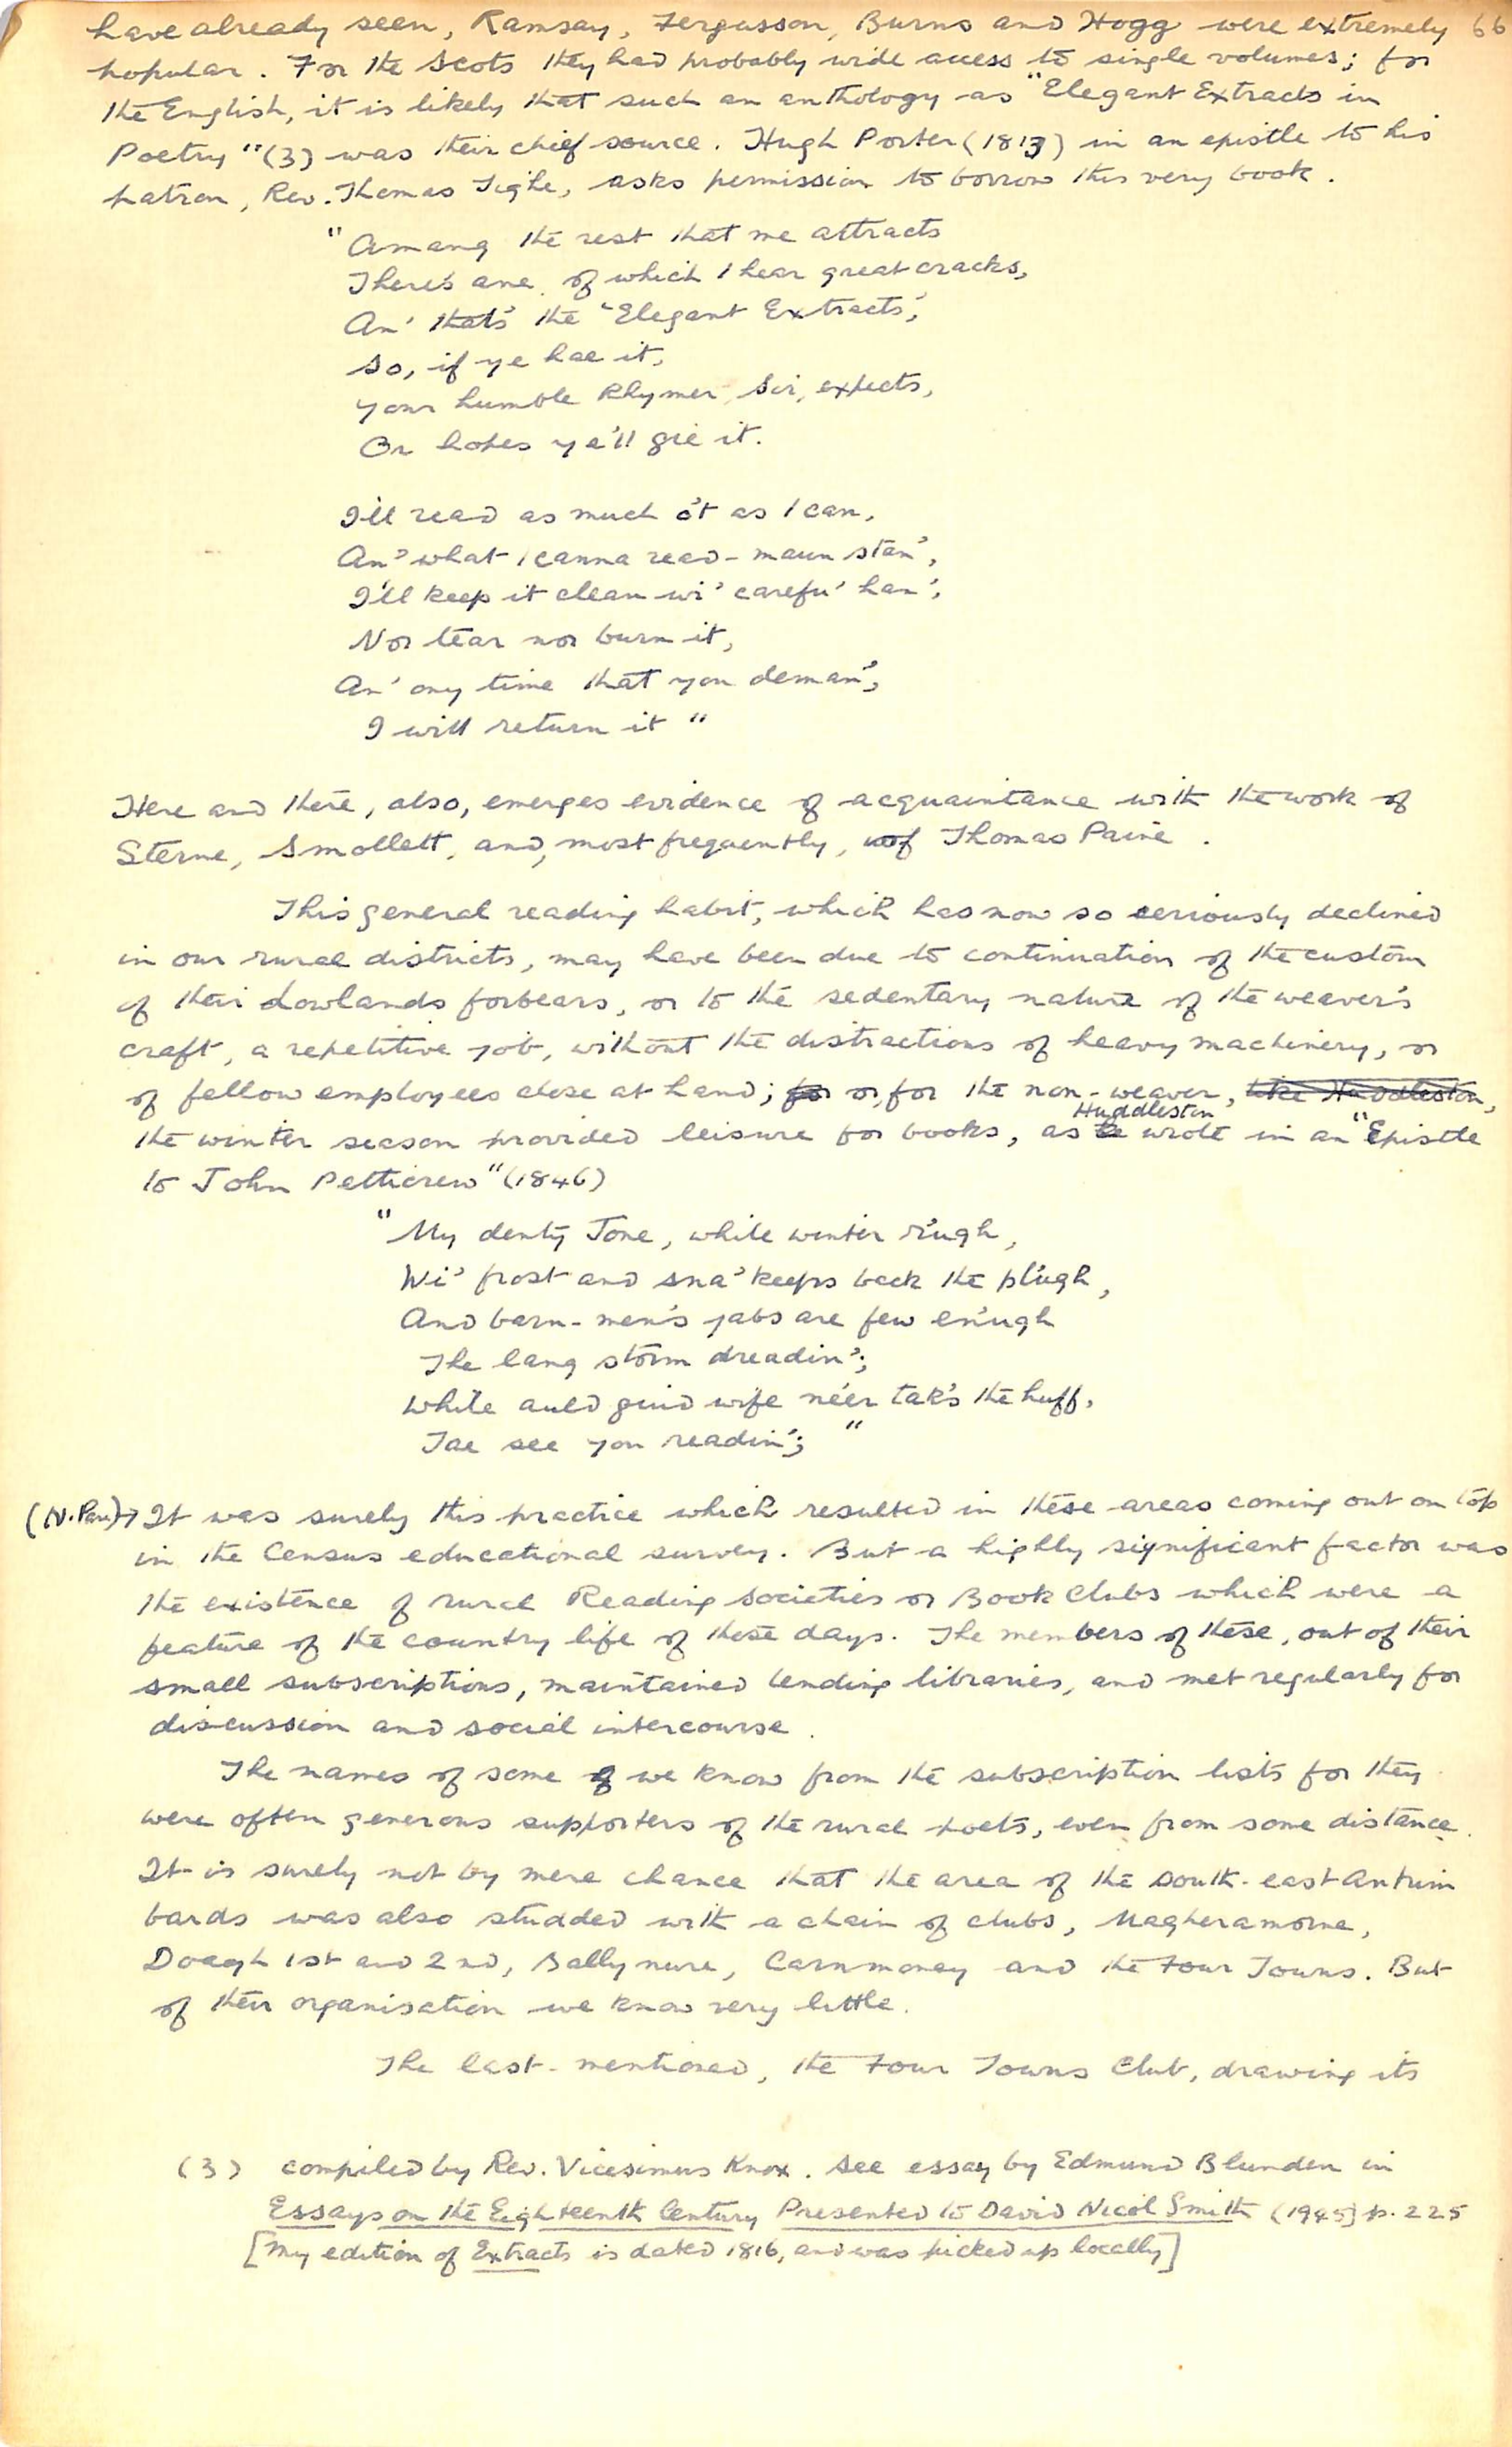 have already seen, Ramsay, Fergusson, Burns and Hogg were extremely 66
popular. For the Scots they had probably wide access to single volumes; for
the English, it is likely that such an anthology as "Elegant Extracts in
Poetry"(3) was their chief source. Hugh Porter (1813) in an epistle to his
patron, Rev. Thomas Tighe, asks permission to borrow this very book.
"Amang the rest that me attracts
There's ane of which I hear great cracks,
An' that's the 'Elegant Extracts',
So, if ye hae it,
Your humble Rhymer, Sir, expects,
Or hopes ye'll gie it.
I'll read as much o't as I can,
An' what I canna read - maun stan',
I'll keep it clean wi' carefu' han',
Nor tear nor burn it,
An' ony time that you deman',
I will return it"
Here and there, also, emerges evidence of acquaintance with the work of
Sterne, Smollett, and, most frequently, of Thomas Paine.
This general reading habit, which has now so seriously declined
in our rural districts, may have been due to continuation of the custom
of their Lowlands forbears, or to the sedentary nature of the weaver's
craft, a repetitive job, without the distractions of heavy machinery, or
of fellow employees close at hand; for or, for the non-weaver, like Huddleston,
the winter season provided leisure for books, as he Huddleston wrote in an "Epistle
to John Petticrew" (1846)
"My denty Jone, while winter r'ugh,
Wi' frost and sna' keeps back the pl'ugh,
And barn-men's jabs are few en'ugh
The lang storm dreadin';
While auld guid wife ne'er tak's the huff,
Tae see you readin';"
(N. Para) → It was surely this practice which resulted in these areas coming out on top
in the Census educational survey. But a highly significant factor was
the existence of rural Reading Societies or Book Clubs which were a
feature of the country life of these days. The members of these, out of their
small subscriptions, maintained lending libraries, and met regularly for
discussion and social intercourse.
The names of some of we know from the subscription lists for they
were often generous supporters of the rural poets, even from some distance.
It is surely not by mere chance that the area of the south-east Antrim
bards was also studded with a chain of clubs, Magheramorne,
Doagh 1st and 2nd, Ballynure, Carnmoney and the Four Towns. But
of their organisation we know very little.
The last-mentioned, the Four Towns Club, drawing its
(3) compiled by Rev. Vicesimus Knox. See essay by Edmund Blunden in
Essays on the Eighteenth Century Presented to David Nicol Smith (1945) p. 225
[My edition of Extracts is dated 1816, and was picked up locally]